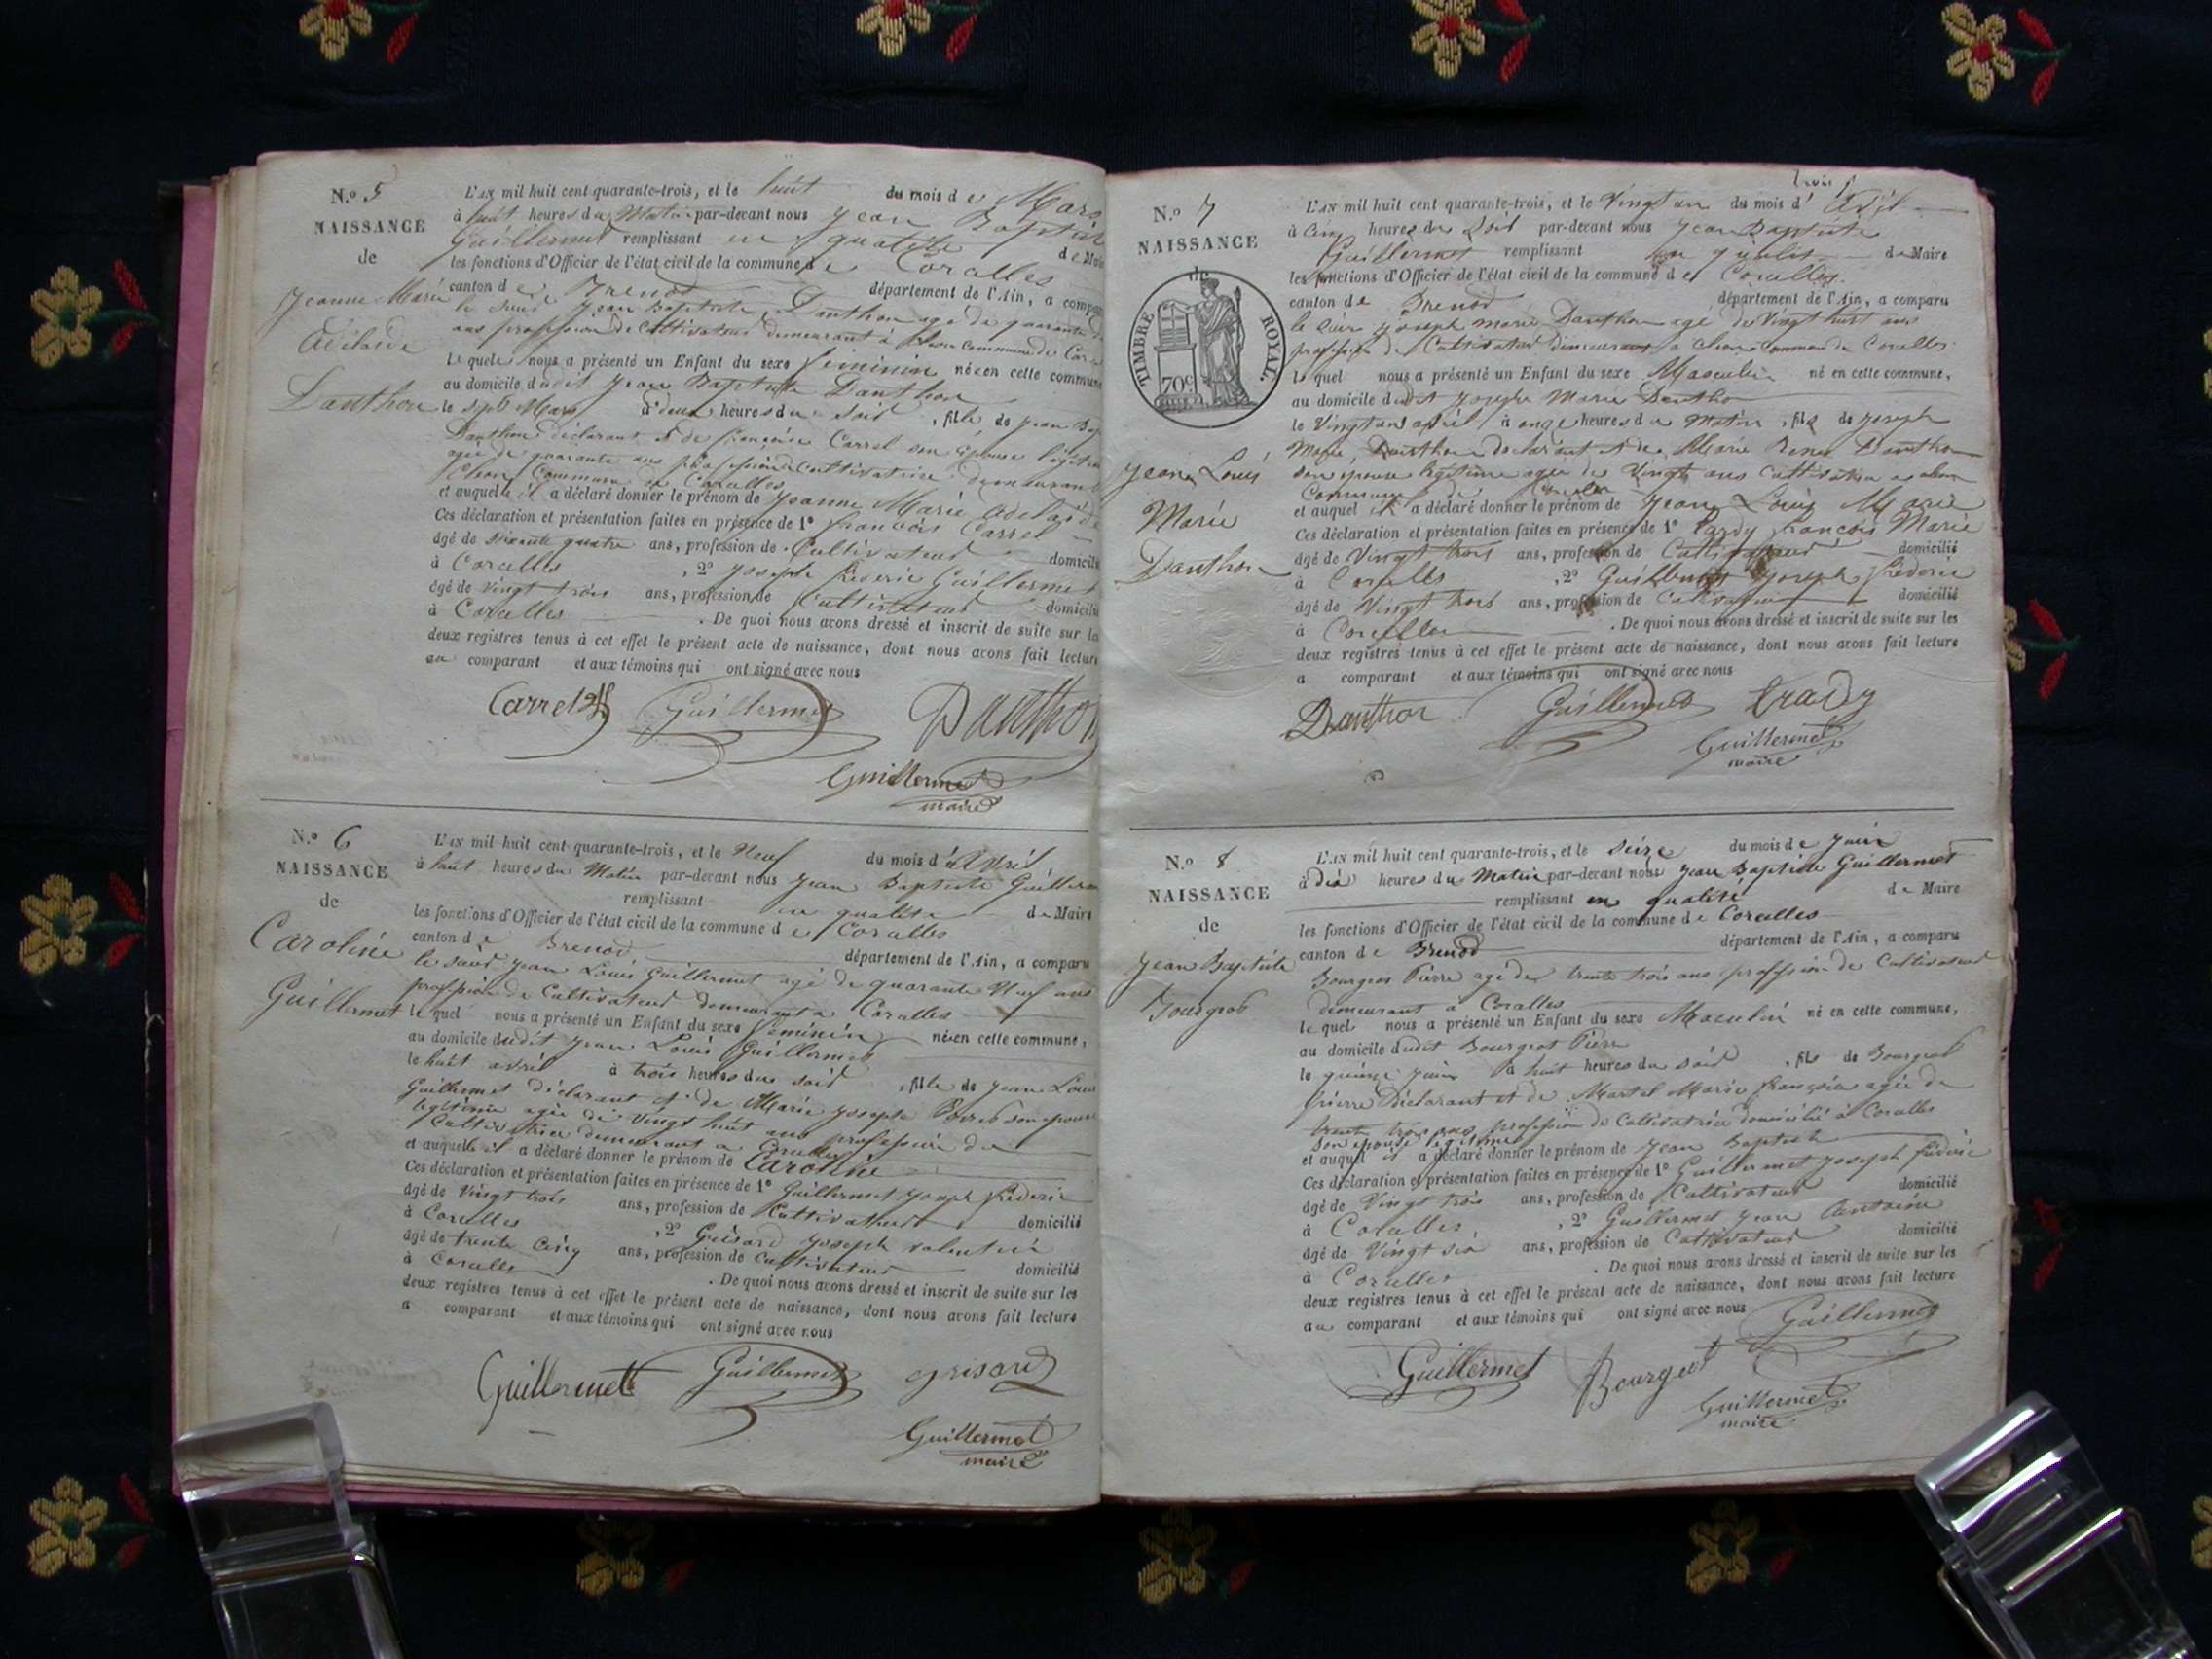 N.o 5
NAISSANCE
de
Jeanne Marie
Adélaïde
Danthon
L'AN mil huit cent quarante-trois, et le huit du mois de Mars
à huit heures du Matin par-devant nous Jean Baptiste
Guillermet remplissant en qualité de Maire
les fonctions d'Officier de l'état civil de la commune de Corcelles
canton de Brenod département de l'Ain, a comparu
le sieur Jean Baptiste Danthon agé de quarante
ans profession de Cultivateur demeurant à commune de
Lequel nous a présenté un Enfant du sexe féminin née en cette commune
au domicile dudit Jean Baptiste Danthon
le sept Mars à deux heures du soir, fille de Jean Bap
Danthon déclarant et de françoise Carrel son épouse légitime
agée de quarante ans profession de cultivatrice demeurant
Commune de Corcelles
et auquelle il a déclaré donner le prénom de Jeanne Marie Adelaïde
Ces déclaration et présentation faites en présence de 1o francois Carrel
âgé de soixante quatre ans, profession de Cultivateur domicilié
à Corcelles, 2o Joseph frederic Guillermet
âgé de vingt trois ans, profession de Cultivateur domicilié
à Corcelles. De quoi nous avons dressé et inscrit de suite sur les
deux registres tenus à cet effet le présent acte de naissance, dont nous avons fait lecture
au comparant et aux témoins qui ont signé avec nous
Carrel Guillermet Danthon
Guillermet
maire
N.o 6
NAISSANCE
de
Caroline
Guillermet
L'AN mil huit cent quarante-trois, et le Neuf du mois d'Avril
à huit heures du Matin par-devant nous Jean Baptiste Guillermet
remplissant en qualité de Maire
les fonctions d'Officier de l'état civil de la commune de Corcelles
canton de Brenod département de l'Ain, a comparu
le sieur Jean Louis Guillermet agé de quarante Neuf ans
profession de Cultivateur demeurant a Corcelles
Lequel nous a présenté un Enfant du sexe féminin née en cette commune,
au domicile dudit Jean Louis Guillermet
le huit avril à trois heures du soir, fille de Jean Louis
Guillermet déclarant et de Marie Joseph son épouse
légitime agée de vingt huit ans profession de
Cultivatrice demeurant a Corcelles
et auquelle il a déclaré donner le prénom de Caroline
Ces déclaration et présentation faites en présence de 1o Guillermet Joseph frederic
âgé de vingt trois ans, profession de Cultivateur domicilié
à Corcelles, 2o Grisard Joseph valentin
âgé de trente cinq ans, profession de Cultivateur domicilié
à Corcelles. De quoi nous avons dressé et inscrit de suite sur les
deux registres tenus à cet effet le présent acte de naissance, dont nous avons fait lecture
a comparant et aux témoins qui ont signé avec nous
Guillermet Guillermet Grisard
Guillermet
maire
trois
N.o 7
NAISSANCE
de
TIMBRE ROYAL.
70c
Jean Louis
Marie
Danthon
L'AN mil huit cent quarante-trois, et le Vingt un du mois d'Avril
à cinq heures du Soir par-devant nous Jean Baptiste
Guillermet remplissant en qualité de Maire
les fonctions d'Officier de l'état civil de la commune de Corcelles
canton de Brenod département de l'Ain, a comparu
le sieur Joseph marie Danthon agé de Vingt huit ans
profession de Cultivateur demeurant a commune de Corcelles
Lequel nous a présenté un Enfant du sexe Masculin né en cette commune,
au domicile dudit Joseph Marie Danthon
le Vingt un avril à onze heures du Matin, fils de Joseph
Marie Danthon déclarant et de Marie Danthon
son epouse légitime agée de Vingt ans cultivatrice a
Commune de Corcelles
et auquel il a déclaré donner le prénom de Jean Louis Marie
Ces déclaration et présentation faites en présence de 1o Tardy francois Marie
âgé de Vingt trois ans, profession de Cultivateur domicilié
à Corcelles, 2o Guillermet Joseph frederic
âgé de Vingt trois ans, profession de Cultivateur domicilié
à Corcelles. De quoi nous avons dressé et inscrit de suite sur les
deux registres tenus à cet effet le présent acte de naissance, dont nous avons fait lecture
a comparant et aux témoins qui ont signé avec nous
Danthon Guillermet
Guillermet
maire
N.o 8
NAISSANCE
de
Jean Baptiste
Bourgeot
L'AN mil huit cent quarante-trois, et le seize du mois de Juin
à dix heures du Matin par-devant nous Jean Baptiste Guillermet
remplissant en qualité de Maire
les fonctions d'Officier de l'état civil de la commune de Corcelles
canton de Brenod département de l'Ain, a comparu
Bourgeot Pierre agé de trente trois ans profession de Cultivateur
demeurant a Corcelles
lequel nous a présenté un Enfant du sexe Masculin né en cette commune,
au domicile dudit Bourgeot Pierre
le quinze Juin à huit heures du soir, fils de Bourgeot
pierre Déclarant et de Martel Marie françoise agée de
trente trois ans profession de Cultivatrice domicilié à Corcelles
son épouse légitime
et auquel il a déclaré donner le prénom de Jean Baptiste
Ces déclaration et présentation faites en présence de 1o Guillermet Joseph frédéric
âgé de Vingt trois ans, profession de Cultivateur domicilié
à Corcelles, 2o Guillermet Jean Antoine
âgé de Vingt six ans, profession de Cultivateur domicilié
à Corcelles. De quoi nous avons dressé et inscrit de suite sur les
deux registres tenus à cet effet le présent acte de naissance, dont nous avons fait lecture
au comparant et aux témoins qui ont signé avec nous Guillermet
Guillermet Bourgeot
Guillermet
maire